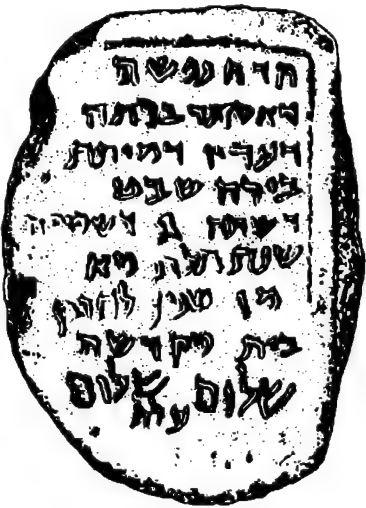 הדא נפשה
דאסתר ברתה
דעדיו דמיתת
בירח שבט
דשתה ג
שנת תלת מא
שנין לחרבן
בית מקדשה
שלום שלום